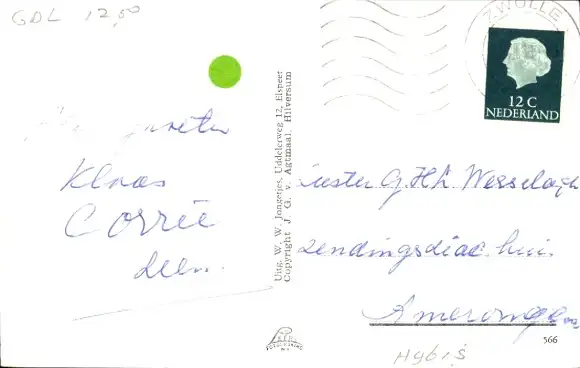 GDL 12,50
groeten
Klaas
Corrie
Uitg. W. W. Jongetjes, Uddelerweg 12, Elspeet
Copyright J. G. v. Agtmaal, Hilversum
ZWOLLE
12 C
NEDERLAND
Zuster G. H. Wesseloogh
zendingsdiac. huis
Amerongen
566